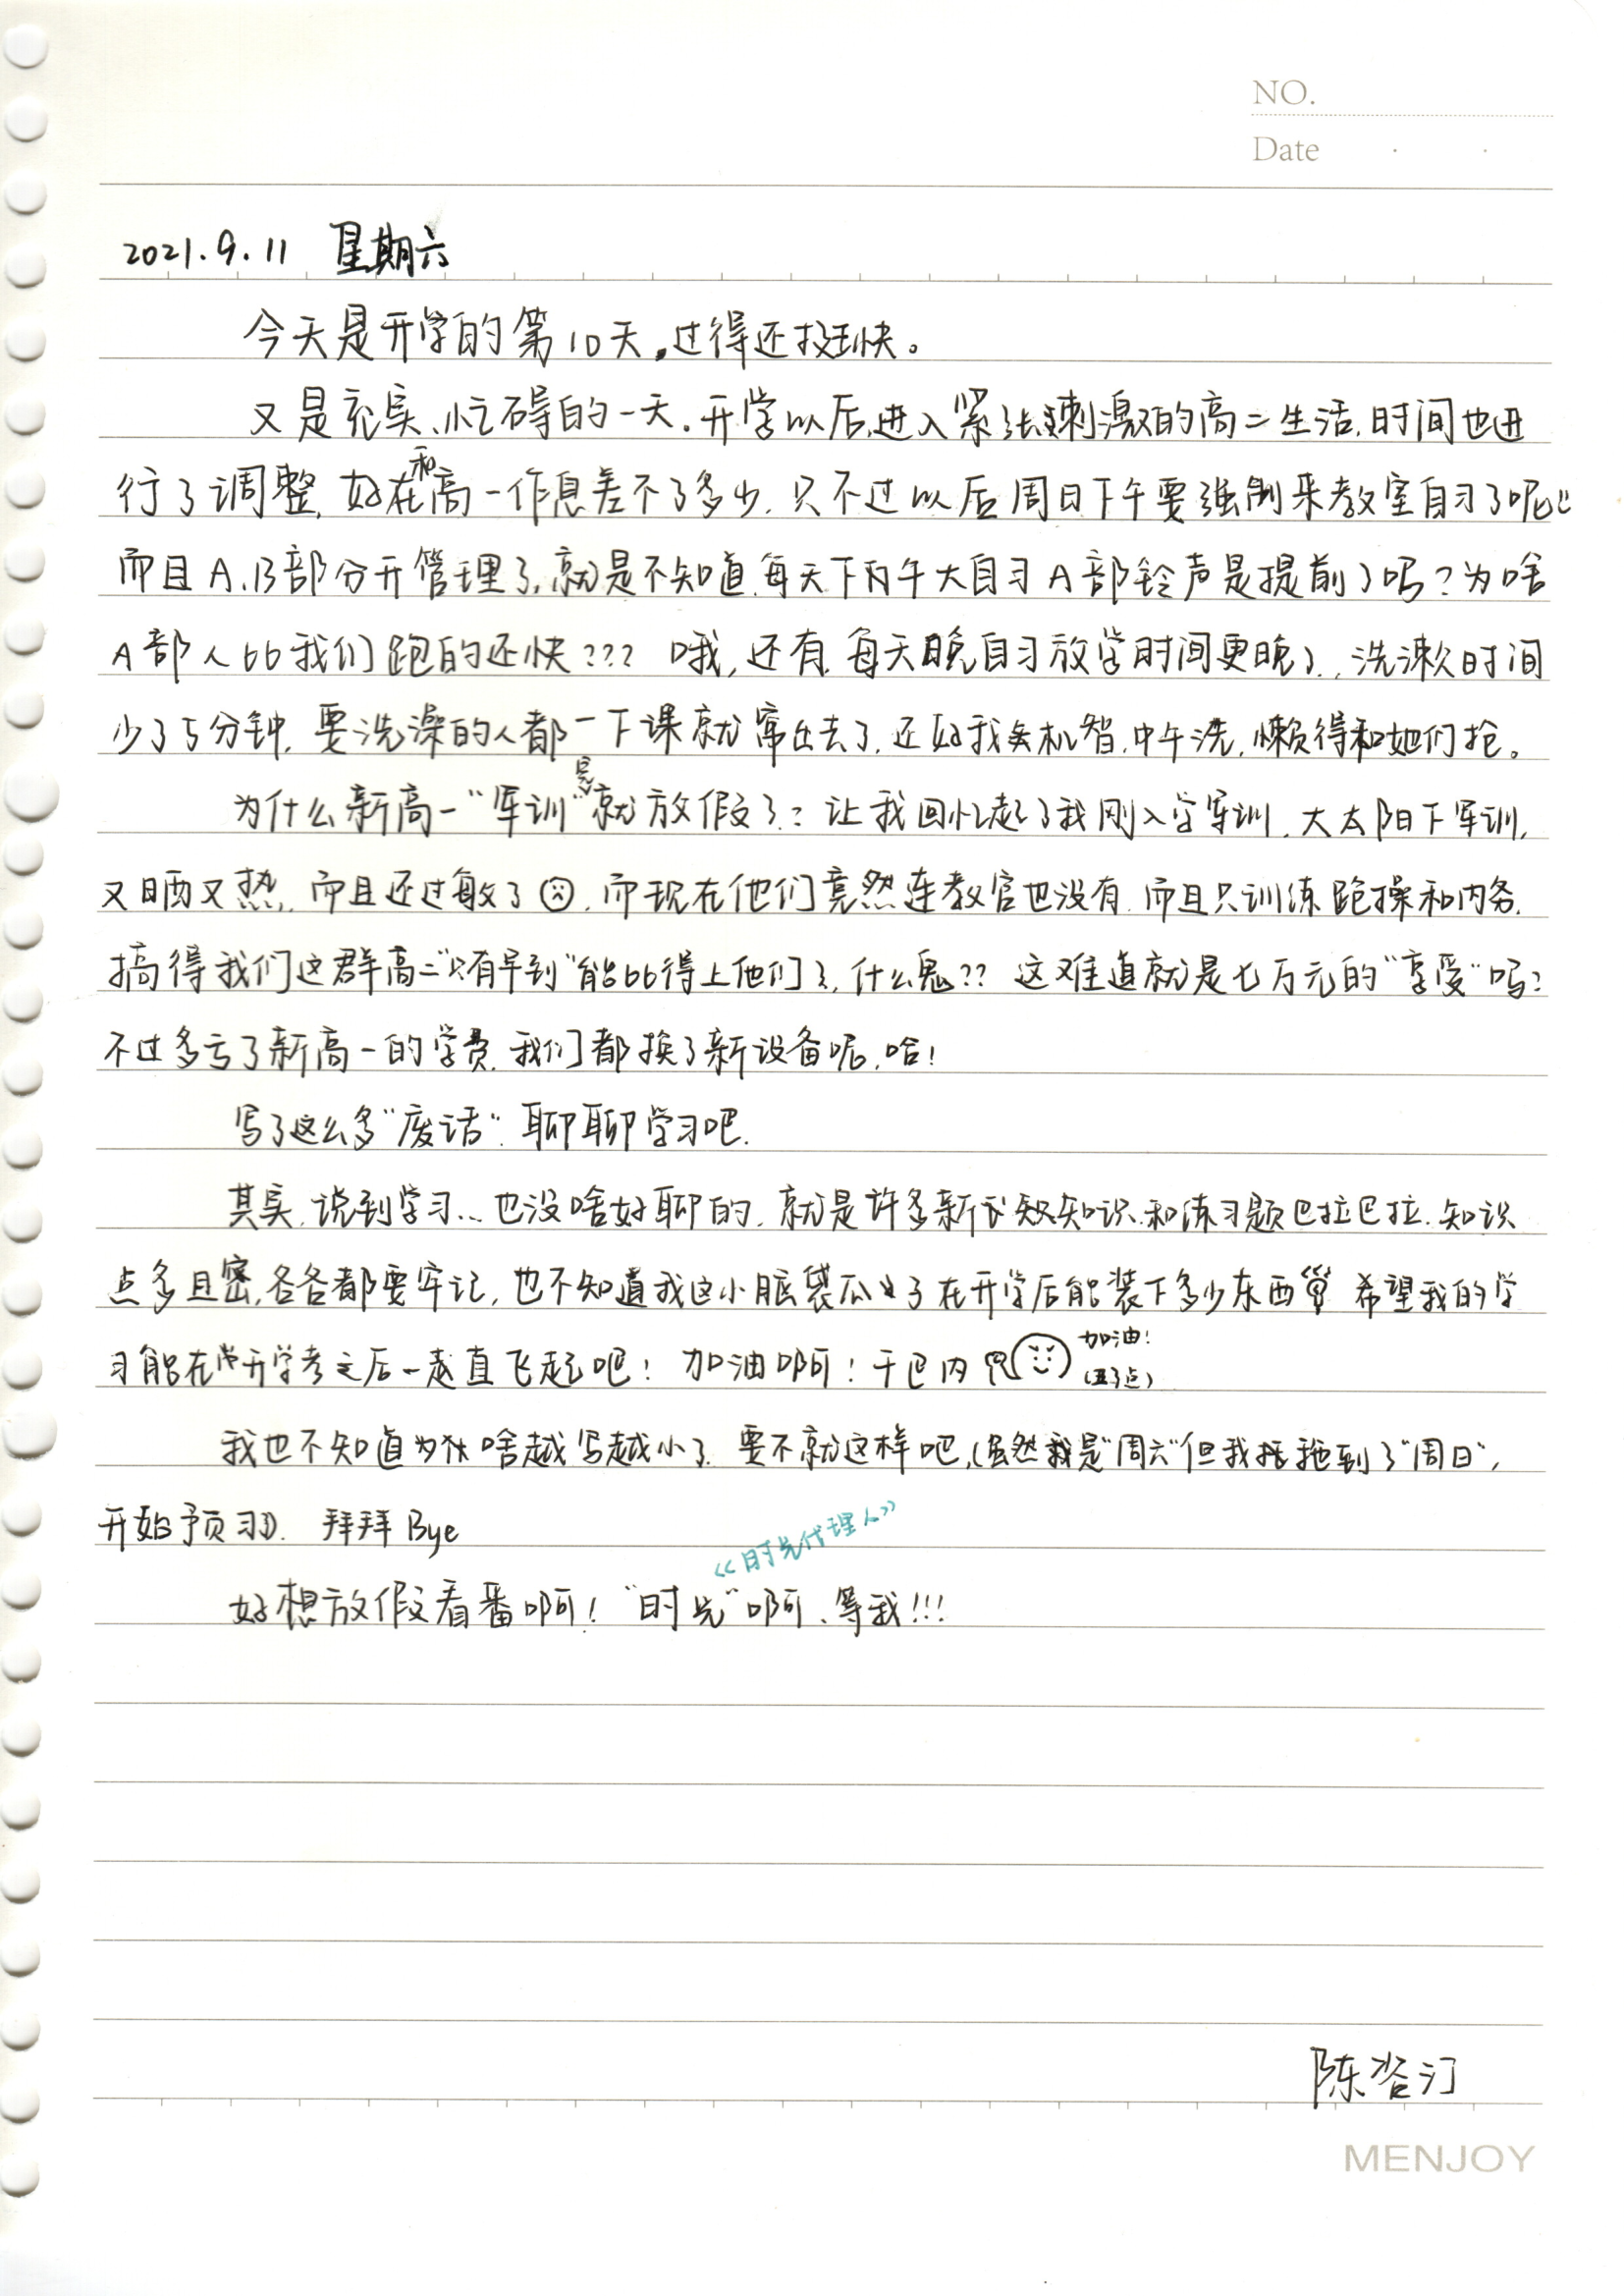 NO.
Date
2021.9.11 星期六
今天是开学的第10天,过得还挺快。
又是充实、忙碌的一天。开学以后,进入紧张刺激的高二生活,时间也进
行了调整,好在和高一作息差不了多少,只不过以后周日下午要强制来教室自习了呢
而且A、B部分开管理了,就是不知道,每天下午大自习A部铃声是提前了吗?为啥
A部人bb我们跑的还快??? 哦,还有,每天晚自习放学时间更晚了,洗漱时间
少了5分钟,要洗澡的人都一下课就窜出去了,还好我头机智,中午洗,懒得和她们抢。
为什么新高一“军训”完就放假了?让我回忆起了我刚入学军训,大太阳下军训,
又晒又热,而且还过敏了,而现在他们竟然连教官也没有,而且只训练跑操和内务,
搞得我们这群高二“只有早到”能bb得上他们了,什么鬼?? 这难道就是七万元的“享受”吗?
不过多亏了新高一的学费,我们都换了新设备呢,哈!
写了这么多“废话”,聊聊学习吧.
其实,说到学习...也没啥好聊的,就是许多新知识和练习题巴拉巴拉,知识
点多且密,各各都要牢记,也不知道我这小脑袋瓜子在开学后能装下多少东西 希望我的学
习能在开学考之后一起直飞起吧!加油啊!干巴内 加油!
(丑了点)
我也不知道为啥越写越小了,要不就这样吧,(虽然我是“周六”但我拖到了“周日”,
开始预习). 拜拜Bye
《时光代理人》
好想放假看番啊!“时光”啊、等我!!!
陈沯汀
MENJOY